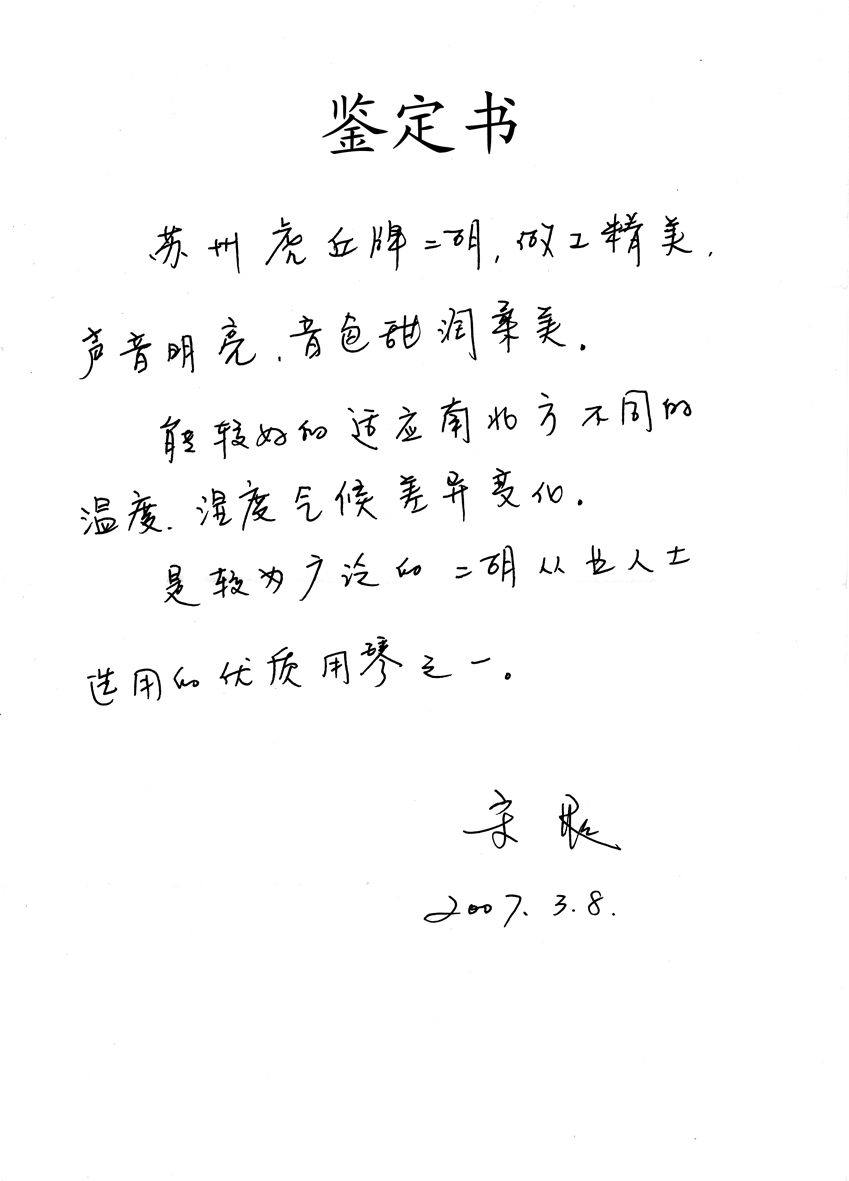 鉴定书
苏州虎丘牌二胡,做工精美,
声音明亮、音色甜润柔美.
能较好的适应南北方不同的
温度、湿度气候差异变化.
是较为广泛的二胡从业人士
选用的优质用琴之一。
宋
2007.3.8.